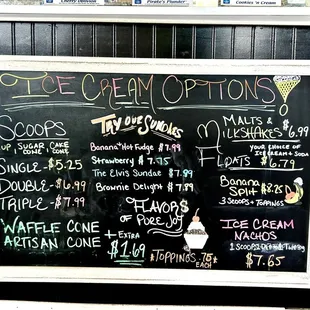 Cherry Cordial
Pirate's Plunder
Cookies 'n Cream
ICE CREAM OPTIONS
SCOOPS
CUP SUGAR CAKE
CONE CONE
SINGLE - $5.25
DOUBLE - $6.99
TRIPLE - $7.99
WAFFLE CONE
ARTISAN CONE
+ EXTRA
$1.69
TRY OUR SUNDAES
Banana Hot Fudge $7.99
Strawberry $7.75
The Elvis Sundae $7.89
Brownie Delight $7.89
FLAVORS
OF
PURE JOY
TOPPINGS .75
EACH
MALTS &
MILKSHAKES $6.99
YOUR CHOICE OF
ICE CREAM & SODA
FLOATS $6.79
BANANA
SPLIT $8.25
3 SCOOPS + TOPPINGS
ICE CREAM
NACHOS
$7.65